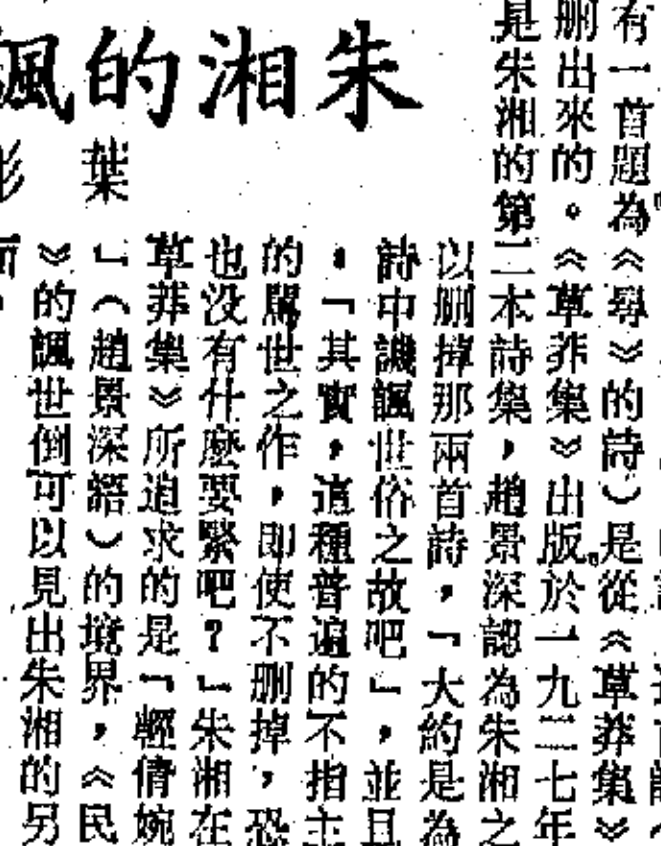 有一首題為《尋》的詩）是從《草莽集》
刪出來的。《草莽集》出版於一九二七年
是朱湘的第二本詩集，趙景深認為朱湘之
以刪掉那兩首詩，「大約是為
詩中譏諷世俗之故吧」，並且
。「其實，這種普遍的不指主
的罵世之作，即使不刪掉，恐
也沒有什麼要緊吧？」朱湘在
草莽集》所追求的是「輕倩婉
」（趙景深語）的境界，《民
》的諷世倒可以見出朱湘的另
朱湘的諷
葉彤